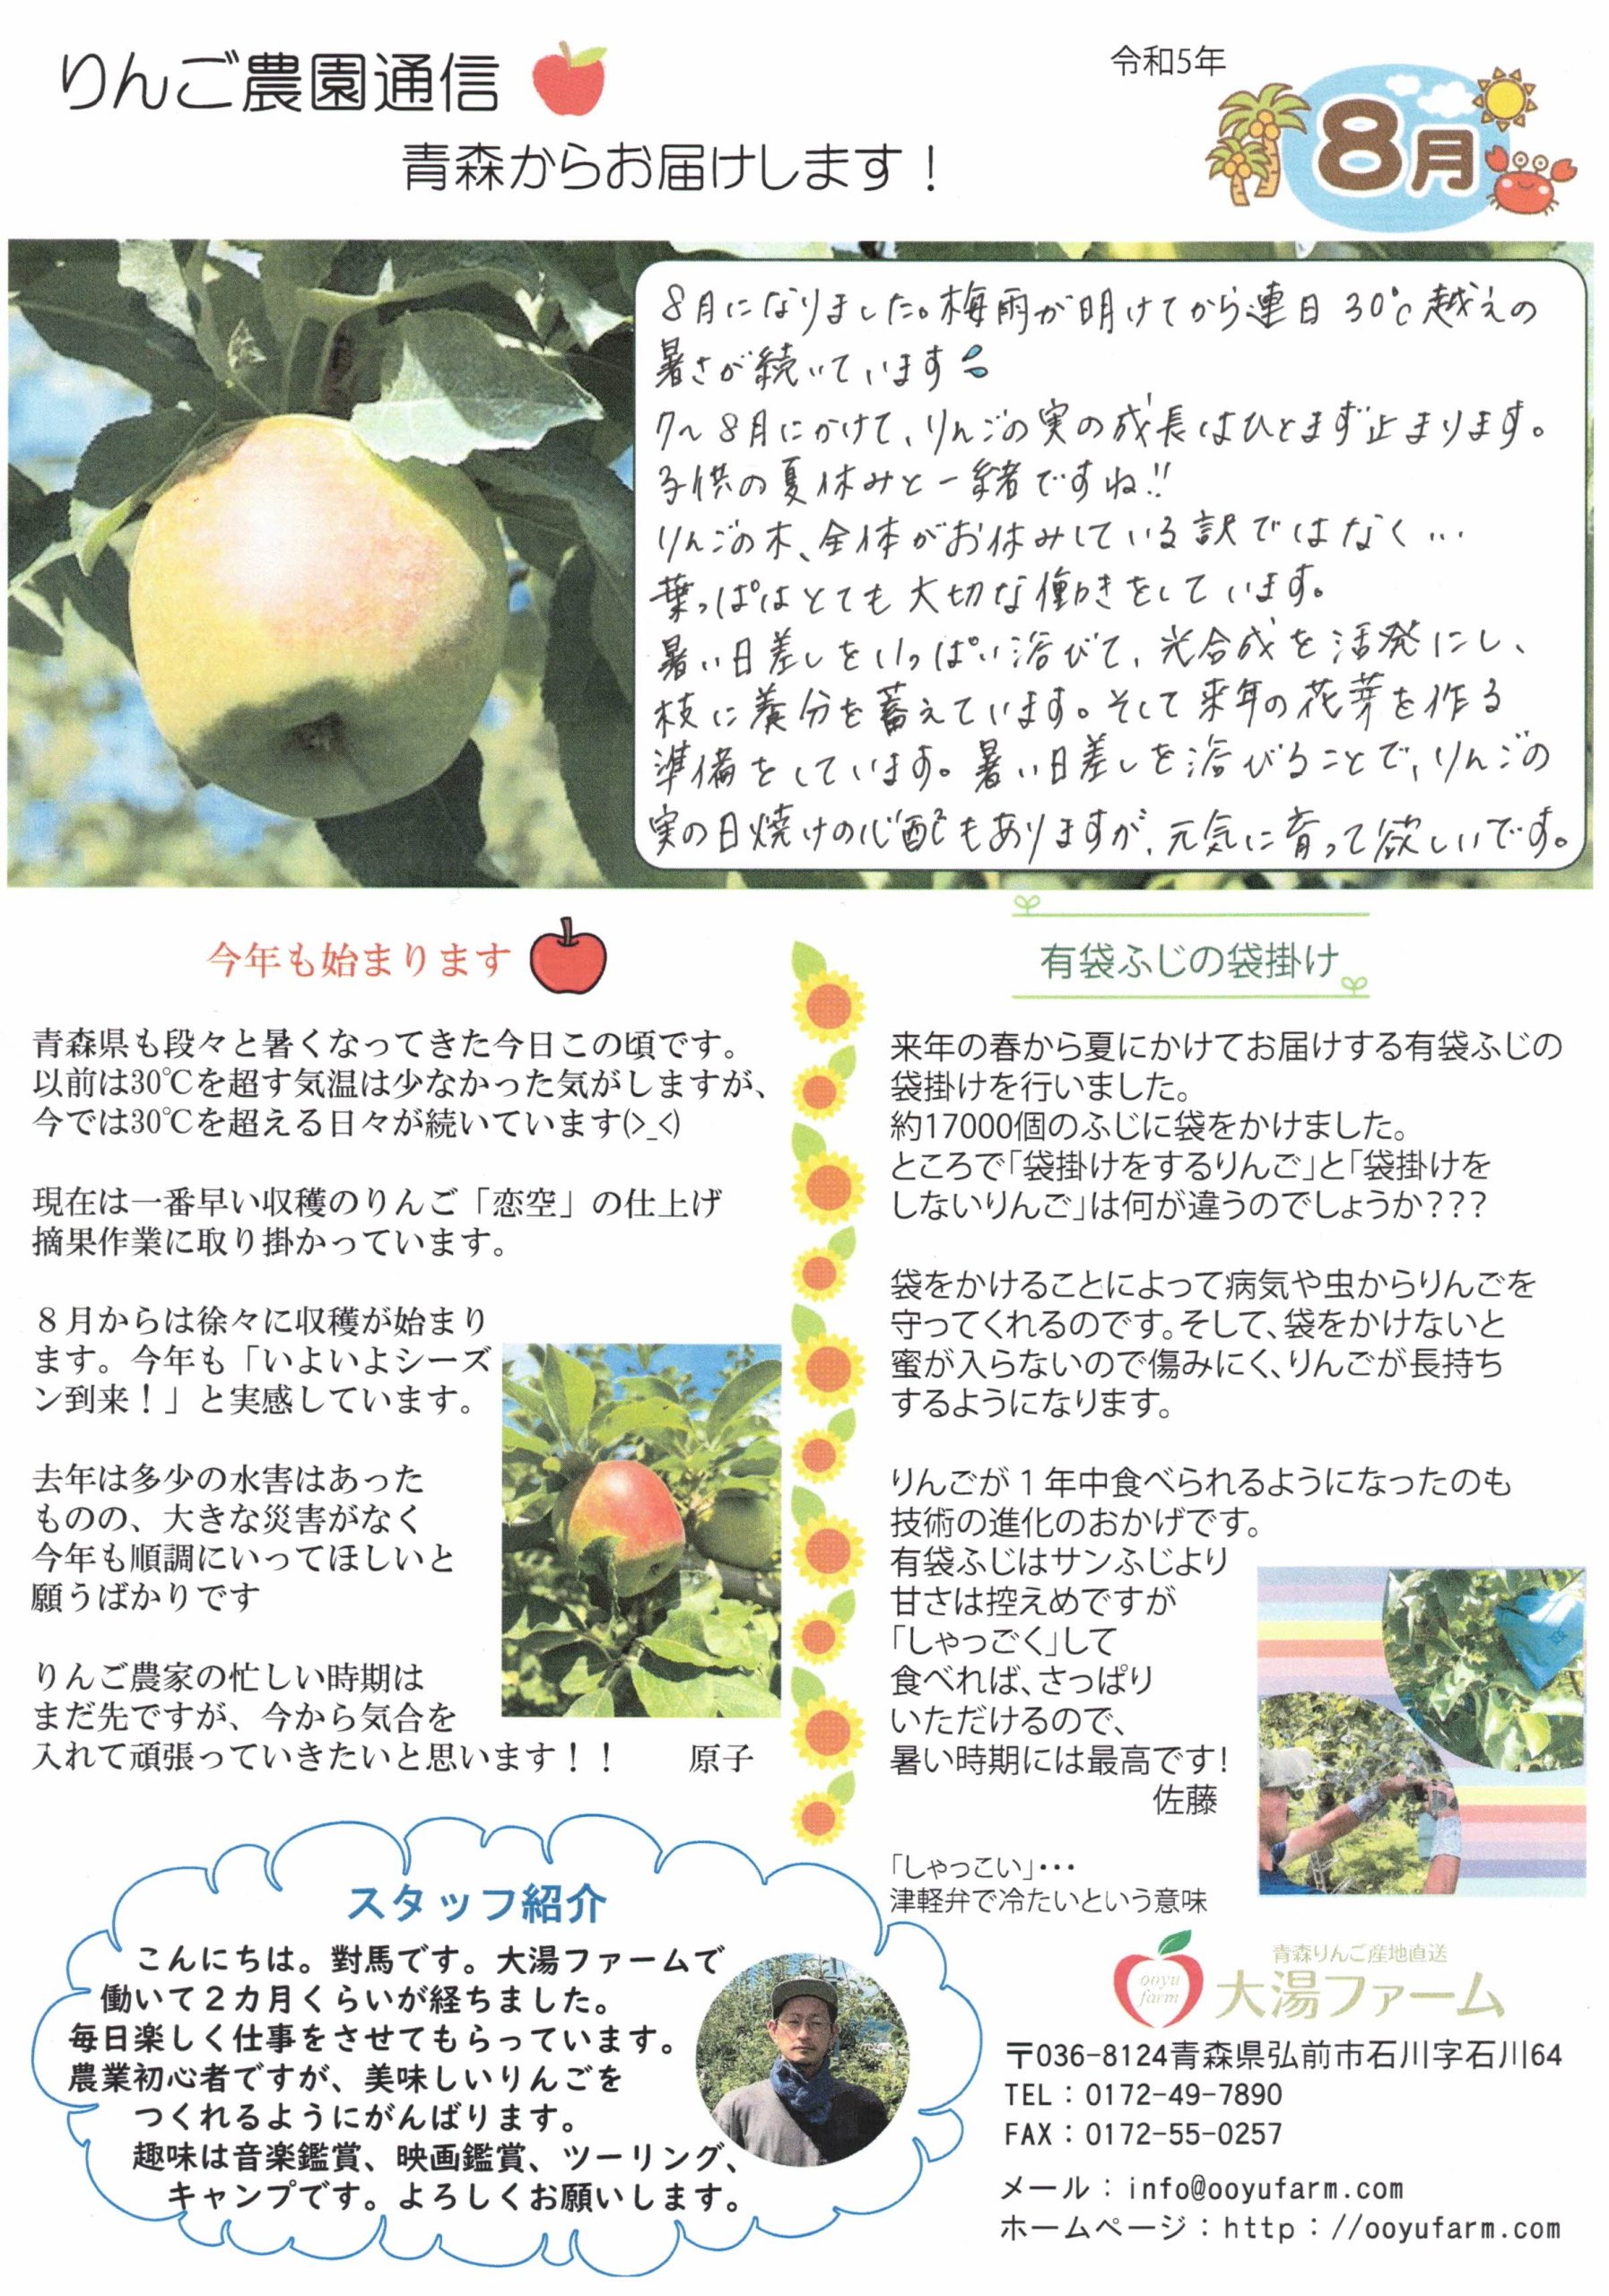 りんご農園通信
青森からお届けします！
令和5年
8月
8月になりました。梅雨が明けてから連日30℃越えの
暑さが続いています
7〜8月にかけて、りんごの実の成長はひとまず止まります。
子供の夏休みと一緒ですね!!
りんごの木、全体がお休みしている訳ではなく…
葉っぱはとても大切な働きをしています。
暑い日差しをいっぱい浴びて、光合成を活発にし、
枝に養分を蓄えています。そして来年の花芽を作る
準備をしています。暑い日差しを浴びることで、りんごの
実の日焼けの心配もありますが、元気に育って欲しいです。
今年も始まります
青森県も段々と暑くなってきた今日この頃です。
以前は30℃を超す気温は少なかった気がしますが、
今では30℃を超える日々が続いています(>_<)
現在は一番早い収穫のりんご「恋空」の仕上げ
摘果作業に取り掛かっています。
８月からは徐々に収穫が始まり
ます。今年も「いよいよシーズ
ン到来！」と実感しています。
去年は多少の水害はあった
ものの、大きな災害がなく
今年も順調にいってほしいと
願うばかりです
りんご農家の忙しい時期は
まだ先ですが、今から気合を
入れて頑張っていきたいと思います！！　原子
有袋ふじの袋掛け
来年の春から夏にかけてお届けする有袋ふじの
袋掛けを行いました。
約17000個のふじに袋をかけました。
ところで「袋掛けをするりんご」と「袋掛けを
しないりんご」は何が違うのでしょうか???
袋をかけることによって病気や虫からりんごを
守ってくれるのです。そして、袋をかけないと
蜜が入らないので傷みにく、りんごが長持ち
するようになります。
りんごが１年中食べられるようになったのも
技術の進化のおかげです。
有袋ふじはサンふじより
甘さは控えめですが
「しゃっごく」して
食べれば、さっぱり
いただけるので、
暑い時期には最高です!
佐藤
「しゃっこい」・・・
津軽弁で冷たいという意味
スタッフ紹介
こんにちは。對馬です。大湯ファームで
働いて２カ月くらいが経ちました。
毎日楽しく仕事をさせてもらっています。
農業初心者ですが、美味しいりんごを
つくれるようにがんばります。
趣味は音楽鑑賞、映画鑑賞、ツーリング、
キャンプです。よろしくお願いします。
ooyu
farm
青森りんご産地直送
大湯ファーム
〒036-8124青森県弘前市石川字石川64
TEL：0172-49-7890
FAX：0172-55-0257
メール：info@ooyufarm.com
ホームページ：http：//ooyufarm.com